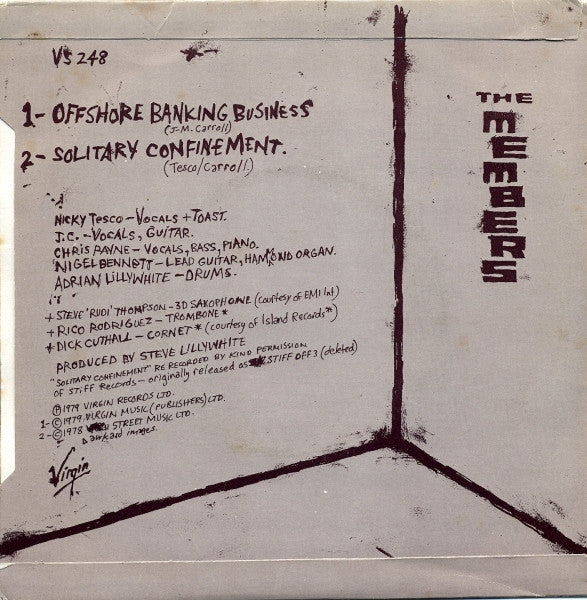 VS 248
1- OFFSHORE BANKING BUSINESS
(J-M. Carroll)
2- SOLITARY CONFINEMENT.
(Tesco/Carroll.)
THE
MEMBERS
NICKY TESCO - VOCALS + TOAST.
J.C. - VOCALS, GUITAR.
CHRIS PAYNE - VOCALS, BASS, PIANO.
NIGEL BENNETT - LEAD GUITAR, HAMMOND ORGAN.
ADRIAN LILLYWHITE - DRUMS.
+ STEVE 'RUDI' THOMPSON - 3D SAXOPHONE (courtesy of EMI Int)
+ RICO RODRIGUEZ - TROMBONE*
+ DICK CUTHALL - CORNET* (courtesy of Island Records*)
PRODUCED BY STEVE LILLYWHITE
"SOLITARY CONFINEMENT" RE RECORDED BY KIND PERMISSION
OF STIFF Records - originally released as STIFF OFF3 (deleted)
Ⓟ1979 VIRGIN RECORDS LTD.
1-©1979 VIRGIN MUSIC (PUBLISHERS) LTD.
2-©1978 STREET MUSIC LTD.
awkard images.
Virgin